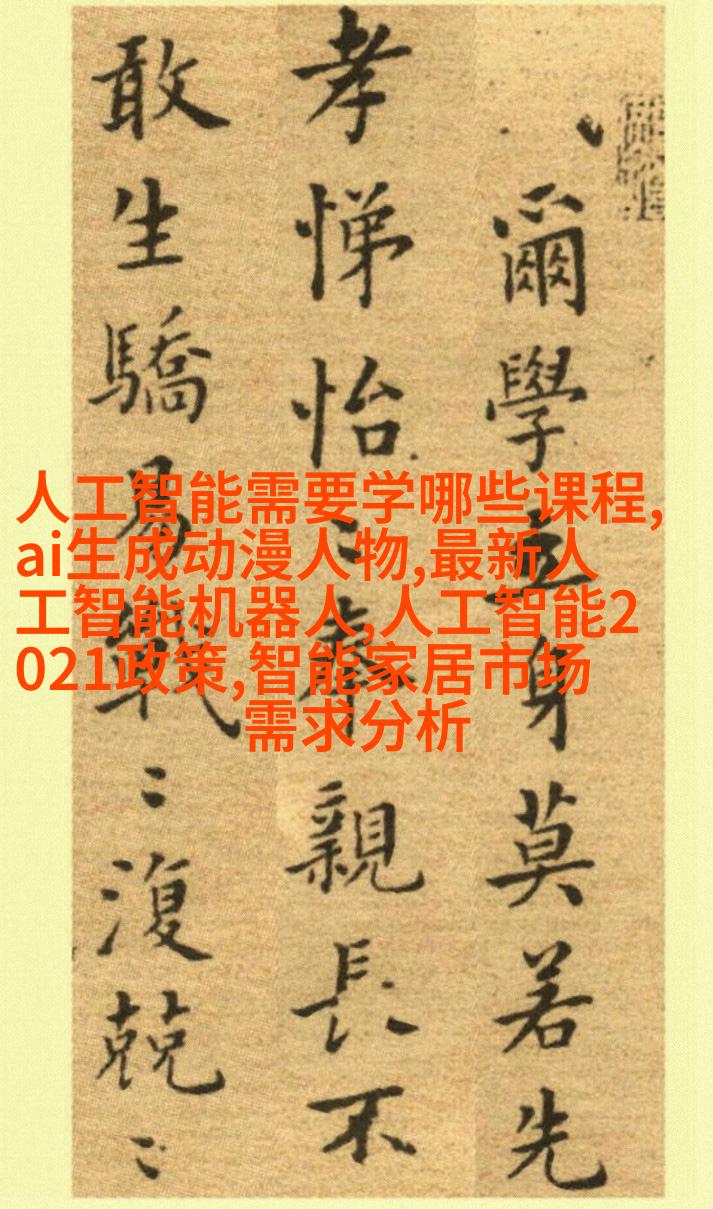 爾學立身莫若先
孝悌怡〻奉親長不
敢生驕易戰〻復兢〻
人工智能需要学哪些课程,
ai生成动漫人物,最新人
工智能机器人,人工智能2
021政策,智能家居市场
需求分析